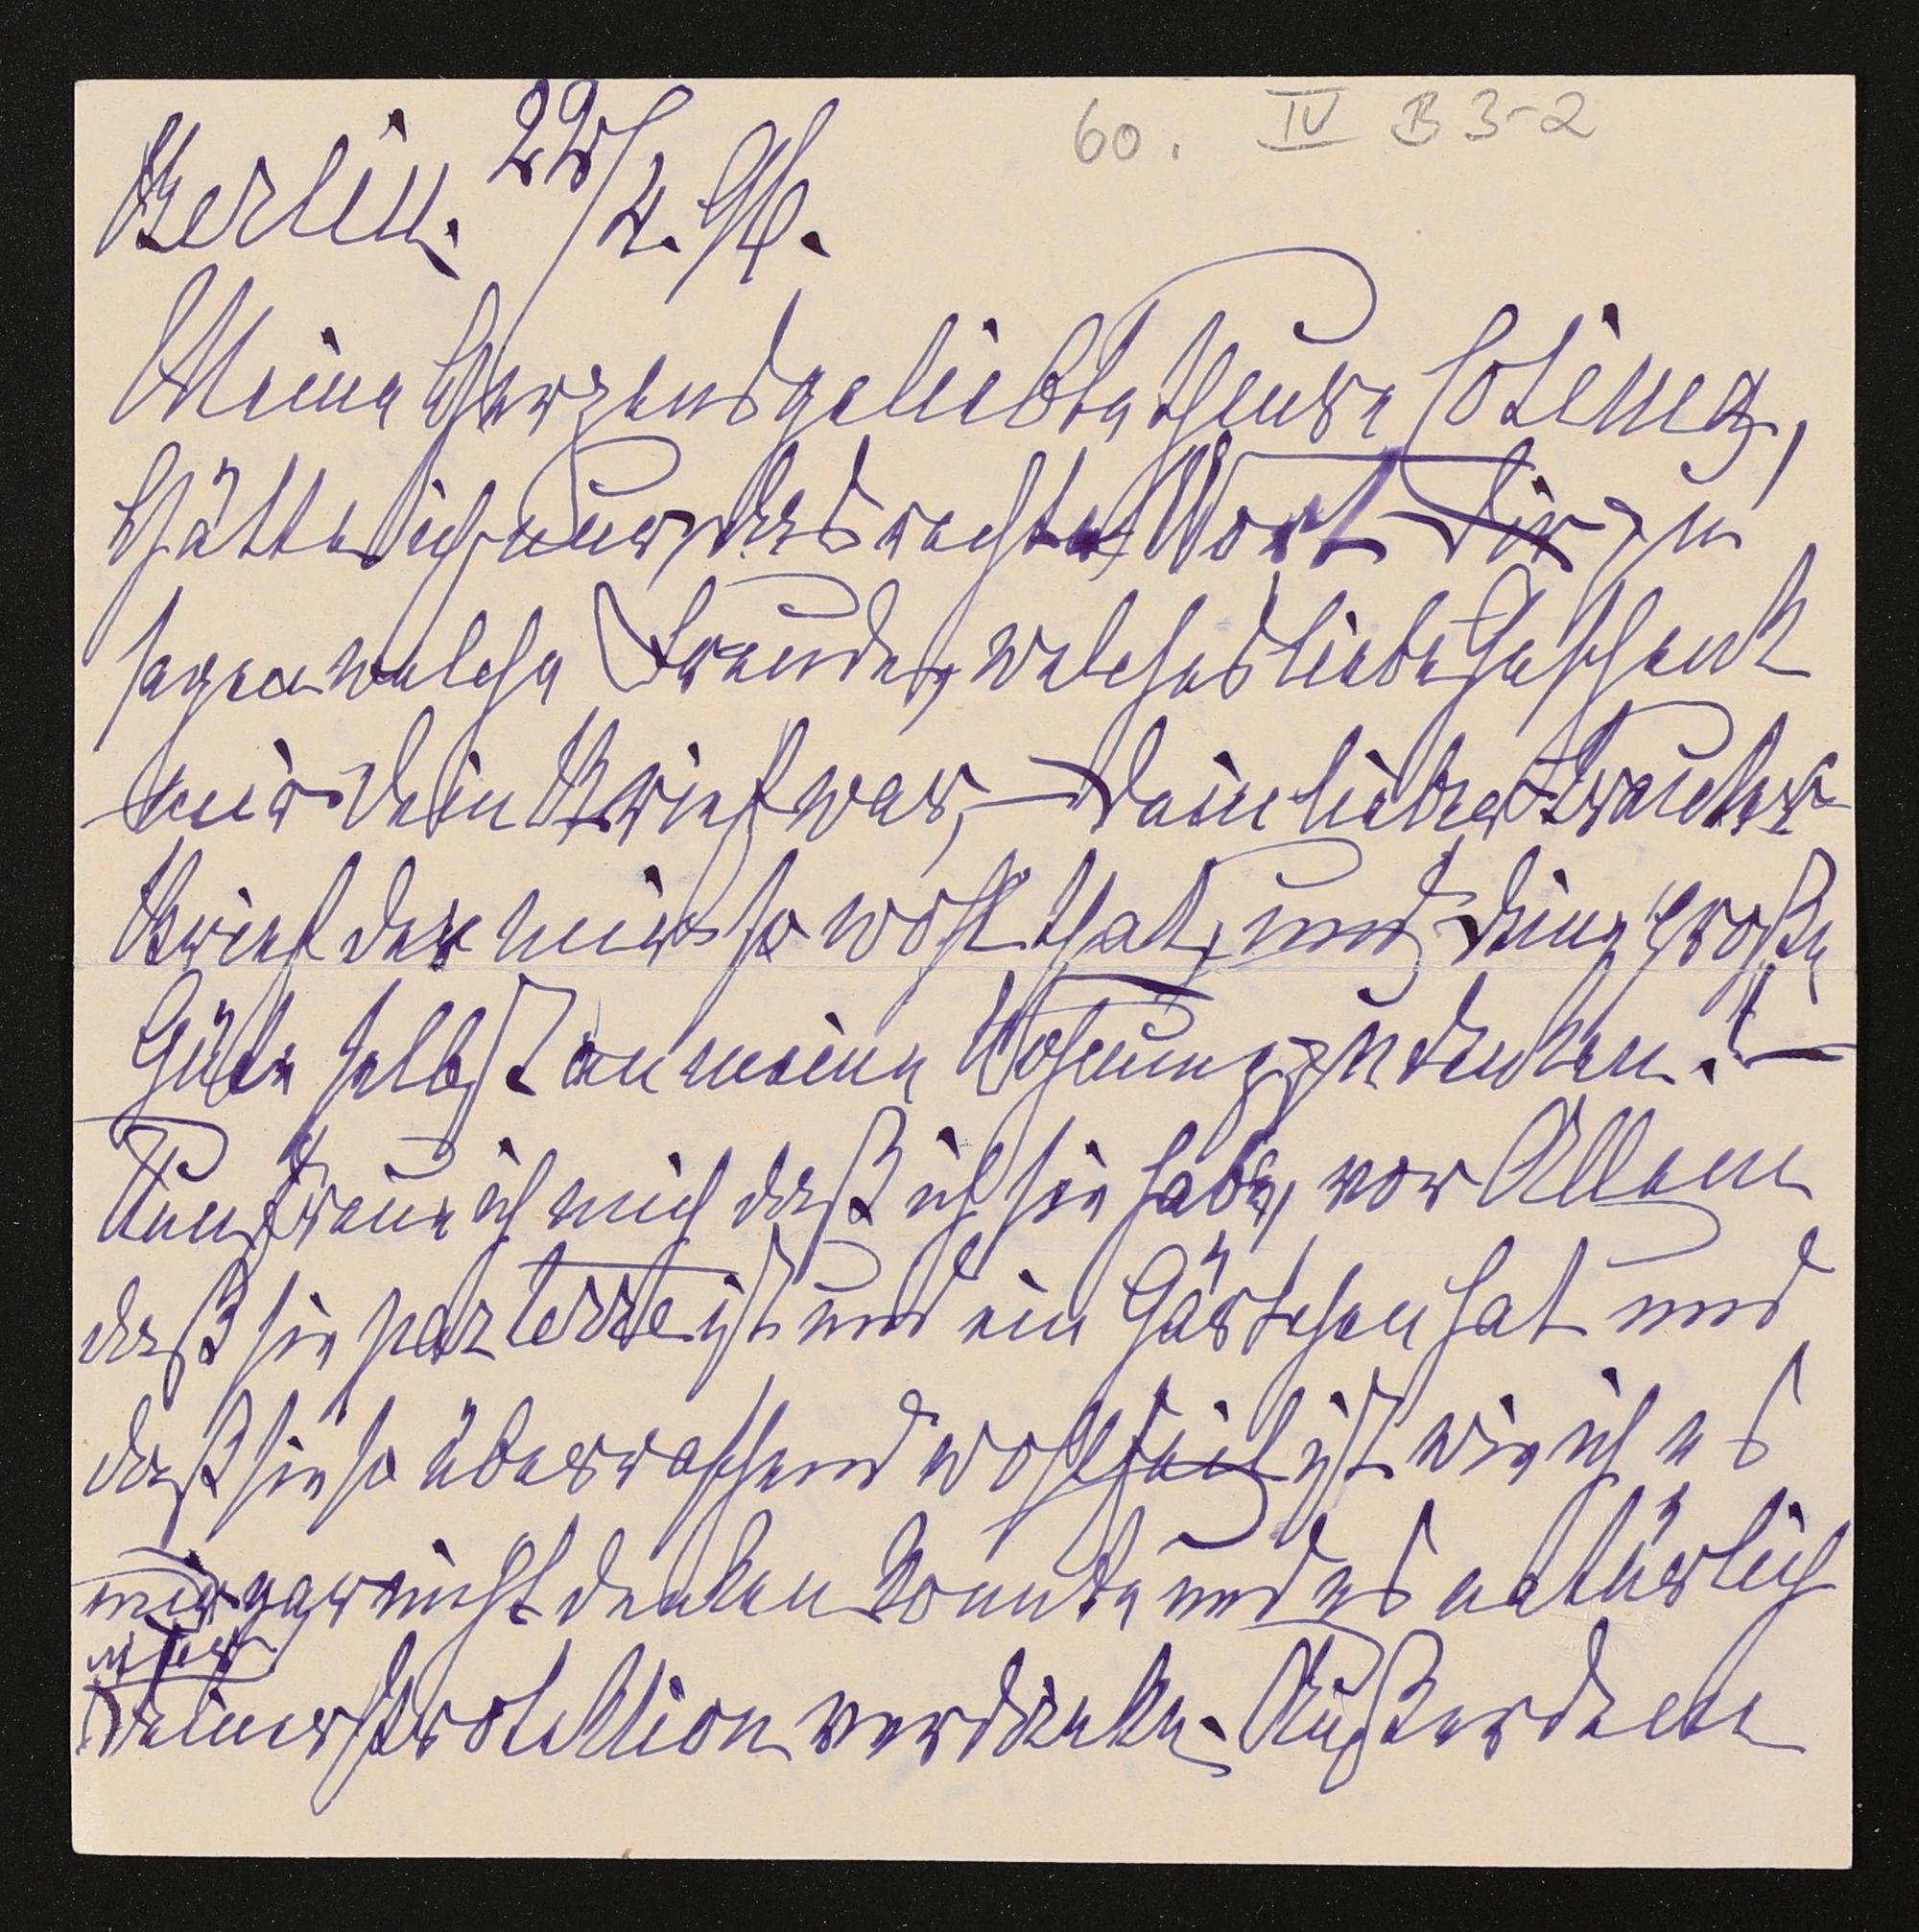 60. IV B 3-2
Berlin. 22/4. 96.
Meine Herzensgeliebte theure Cotinez,
Hätte ich nur das rechte Wort Dir zu
sagen welche Freude, welches liebe Geschenk
mir dein Brief war, — dein lieber trauter
Brief der mir so wohl that, und deine große
Güte selbst an meine Wohnung zu denken! —
Nun freue ich mich daß ich sie habe, vor Allem
daß sie parterre ist und ein Gärtchen hat und
daß sie so überraschend wohlfeil ist wie ich es
mir gar nicht denken konnte und es natürlich
nur
Deiner Protektion verdanke. Außerdem